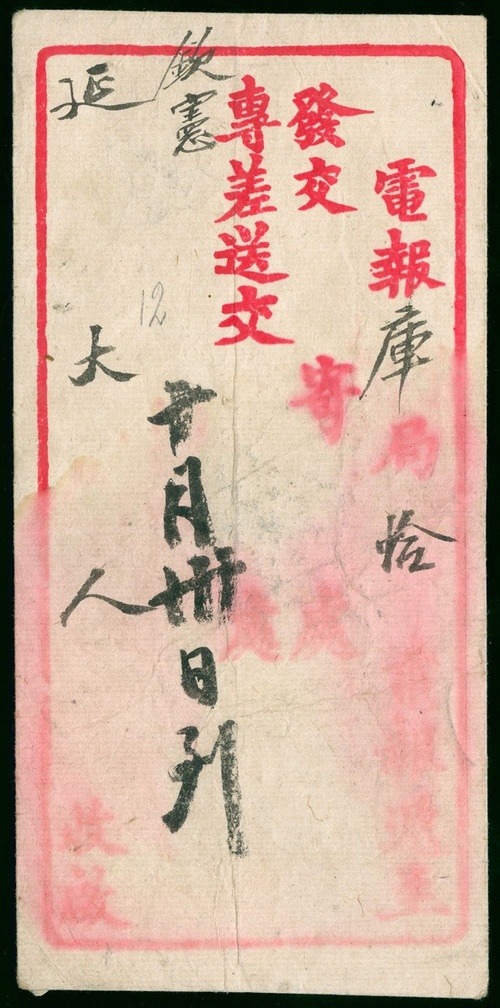 電報庫局拾
發交寄
專差送交
欽憲
12
十月卅日到
延大人